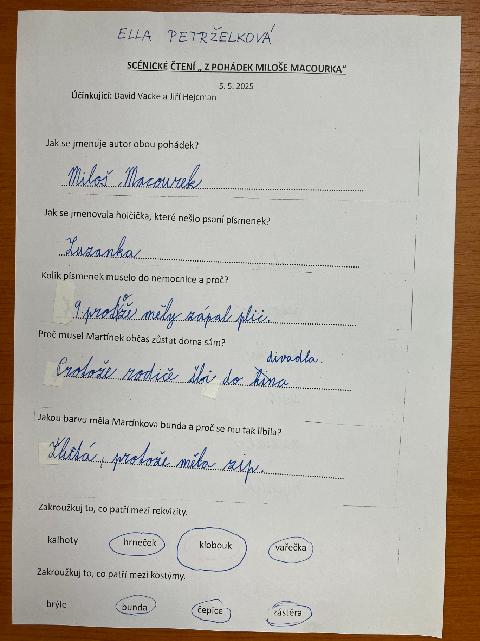 ELLA PETRŽELKOVÁ
SCÉNICKÉ ČTENÍ „ Z POHÁDEK MILOŠE MACOURKA“
5. 5. 2025
Účinkující: David Vacke a Jiří Hejcman
Jak se jmenuje autor obou pohádek?
Miloš Macourek
Jak se jmenovala holčička, které nešlo psaní písmenek?
Zuzanka
Kolik písmenek muselo do nemocnice a proč?
9 protože měly zápal plic.
Proč musel Martínek občas zůstat doma sám?
divadla.
Protože rodiče šli do kina
Jakou barvu měla Martínkova bunda a proč se mu tak líbila?
Žlutá, protože měla zip.
Zakroužkuj to, co patří mezi rekvizity.
kalhoty hrneček klobouk vařečka
Zakroužkuj to, co patří mezi kostýmy.
brýle bunda čepice zástěra